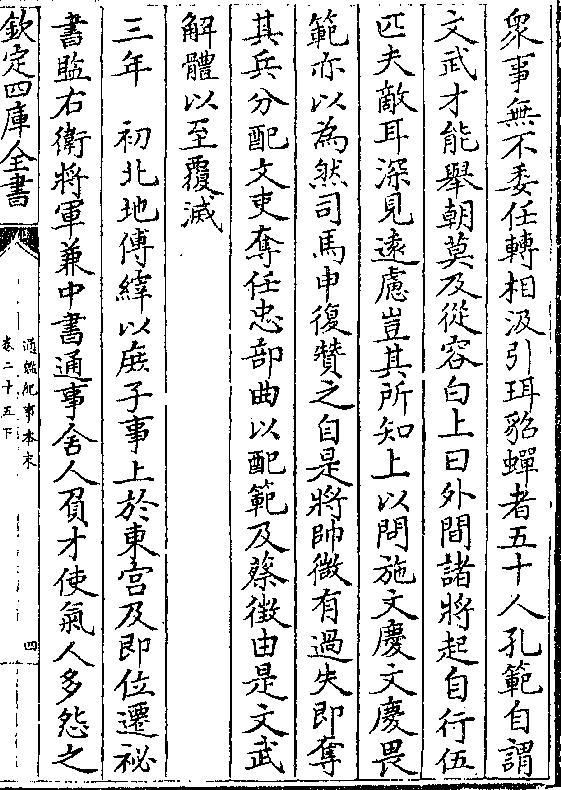 衆事無不委任轉相汲引珥貂蟬者五十人孔範自謂
文武才能舉朝莫及從容白上曰外間諸將起自行伍
匹夫敵耳深見遠慮豈其所知上以問施文慶文慶畏
範亦以為然司馬申復贊之自是將帥微有過失即奪
其兵分配文吏奪任忠部曲以配範及蔡徴由是文武
解體以至覆滅
三年　初北地傅縡以庻子事上於東宫及即位遷祕
書監右衛將軍兼中書通事舍人負才使氣人多怨之
欽定四庫全書
通鑑紀事本末
卷二十五下
四